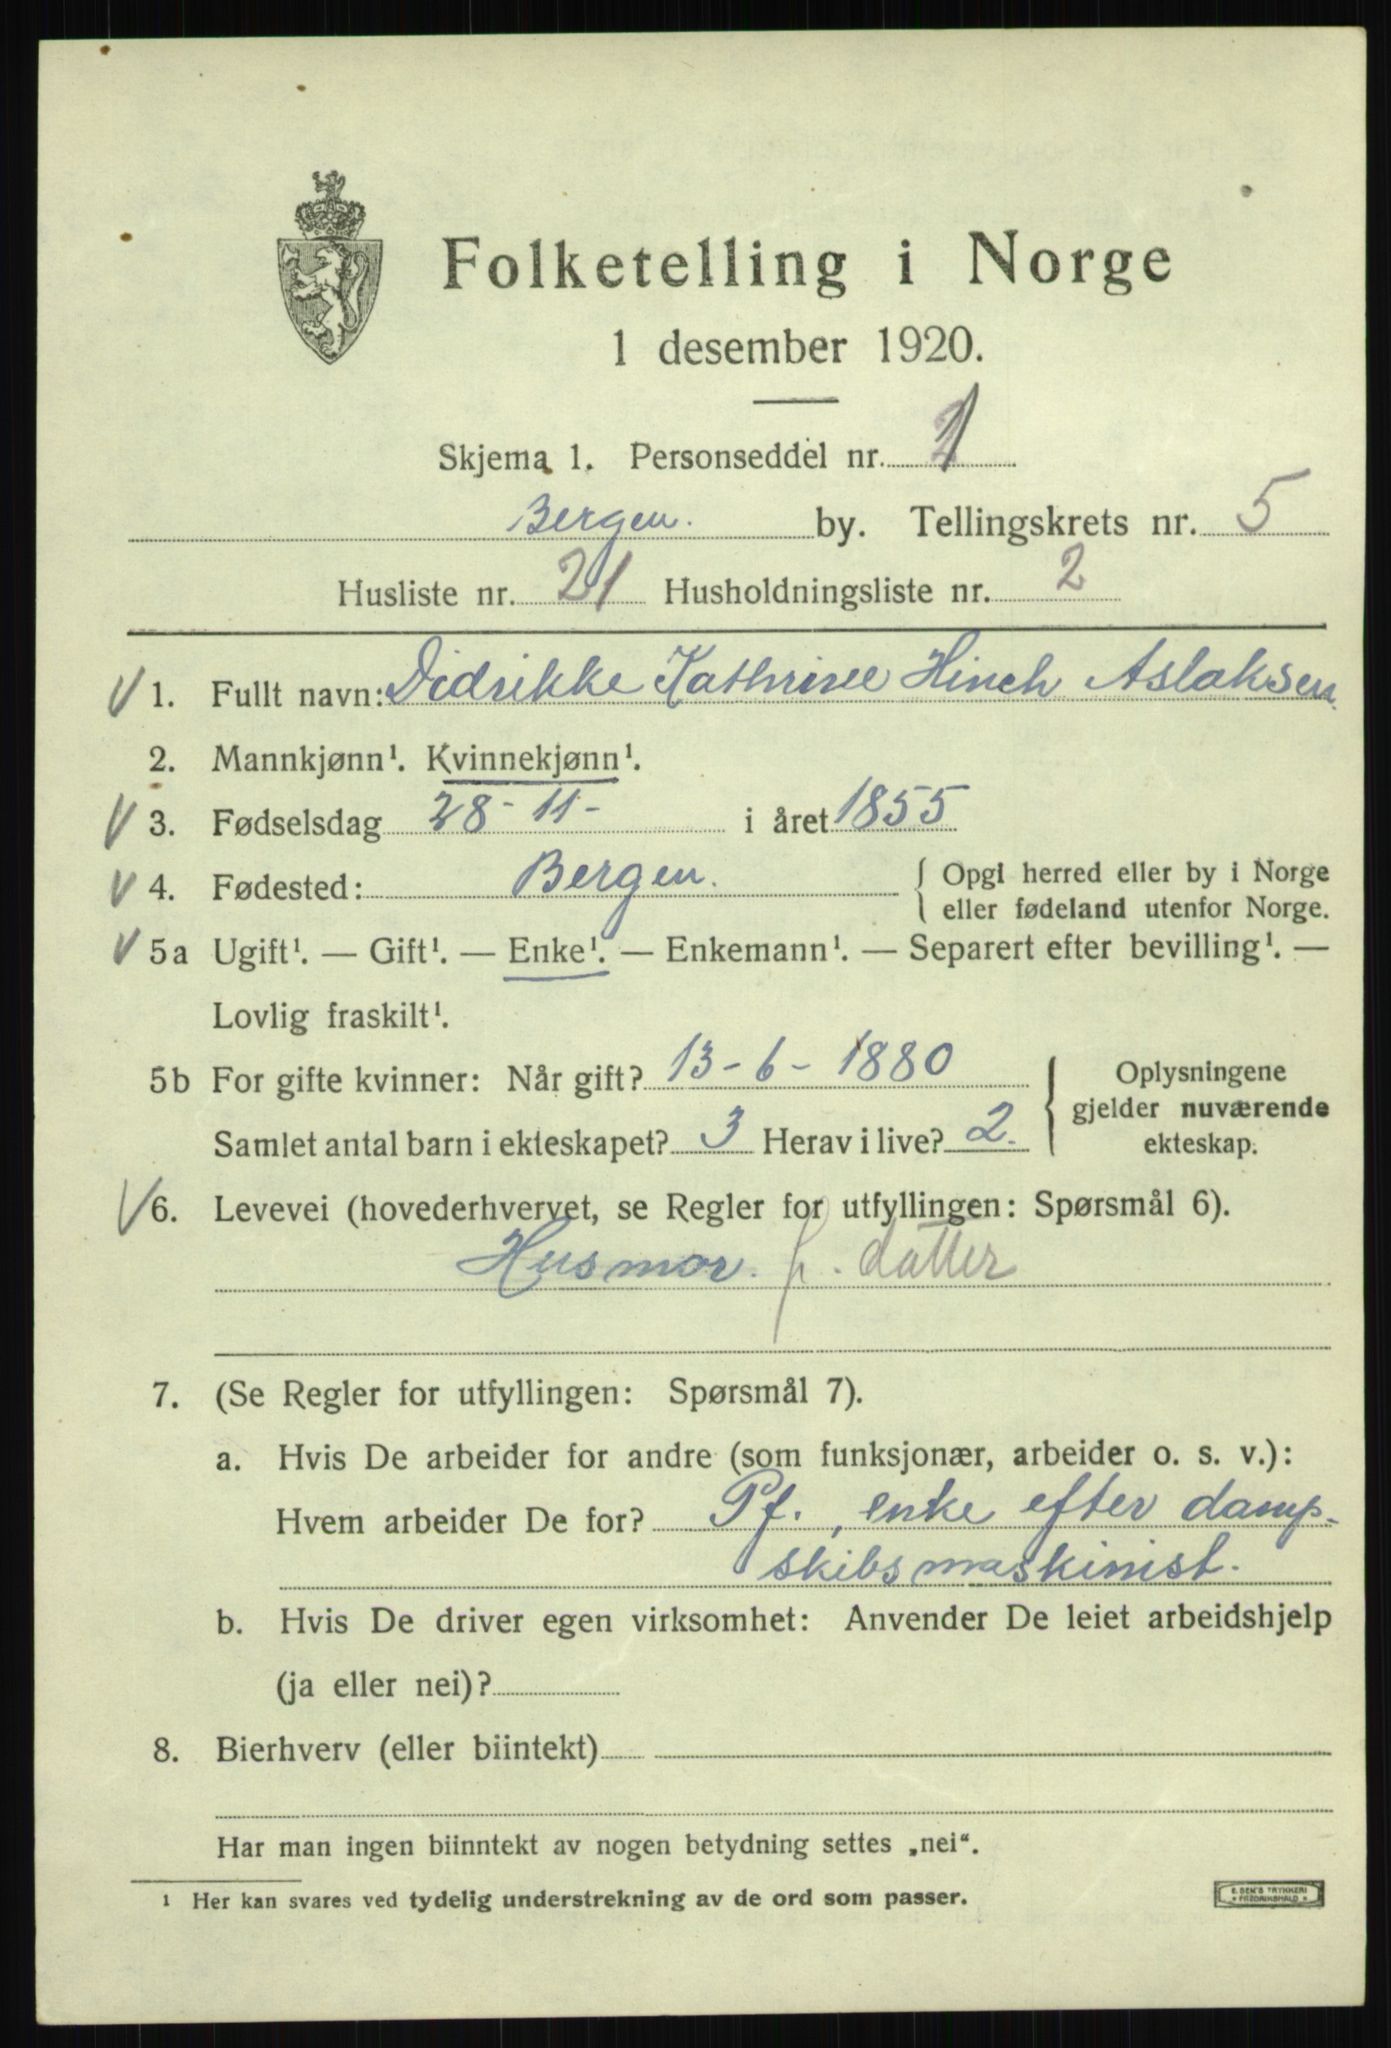 Folketelling i Norge
1 desember 1920.
Skjema 1. Personseddel nr. 1
Bergen. by. Tellingskrets nr. 5
Husliste nr. 21 Husholdningsliste nr. 2
1. Fullt navn: Didrikke Kathrine Hinch Aslaksen
2. Mannkjønn¹. Kvinnekjønn¹.
3. Fødselsdag 28-11- i året 1855
4. Fødested: Bergen. { Opgi herred eller by i Norge
eller fødeland utenfor Norge.
5a Ugift¹. — Gift¹. — Enke¹. — Enkemann¹. — Separert efter bevilling¹. —
Lovlig fraskilt¹.
5b For gifte kvinner: Når gift? 13-6-1880
Samlet antal barn i ekteskapet? 3 Herav i live? 2.
Oplysningene
gjelder nuværende
ekteskap.
6. Levevei (hovederhvervet, se Regler for utfyllingen: Spørsmål 6).
Husmor. f. datter
7. (Se Regler for utfyllingen: Spørsmål 7).
a. Hvis De arbeider for andre (som funksjonær, arbeider o. s. v.):
Hvem arbeider De for? Pf., enke efter damp-
skibsmaskinist.
b. Hvis De driver egen virksomhet: Anvender De leiet arbeidshjelp
(ja eller nei)?
8. Bierhverv (eller biintekt)
Har man ingen biinntekt av nogen betydning settes „nei“.
¹ Her kan svares ved tydelig understrekning av de ord som passer.